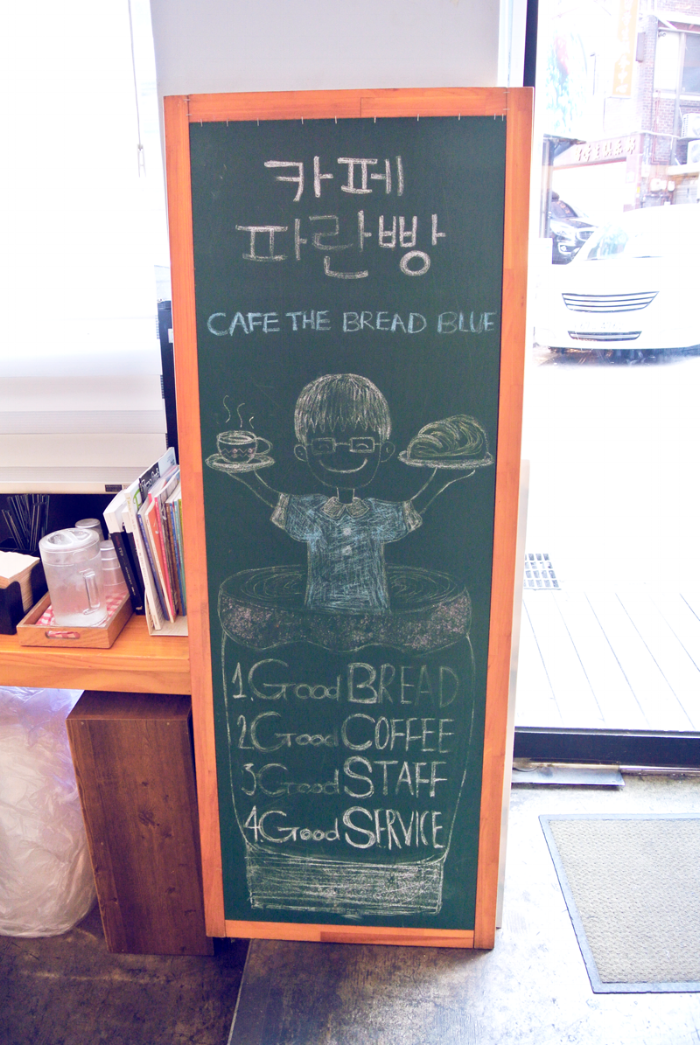 카페
파란빵
CAFE THE BREAD BLUE
1.Good BREAD
2.Good COFFEE
3.Good STAFF
4.Good SERVICE